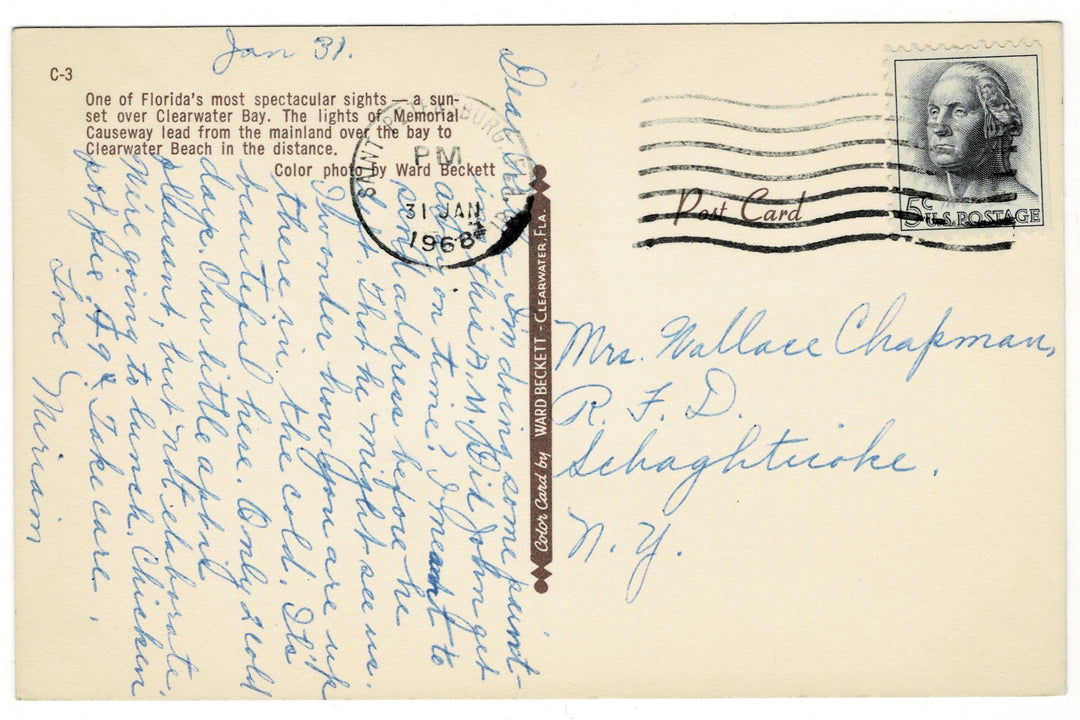 Jan 31.
C-3
One of Florida's most spectacular sights — a sun-
set over Clearwater Bay. The lights of Memorial
Causeway lead from the mainland over the bay to
Clearwater Beach in the distance.
Color photo by Ward Beckett
Dear I'm doing some paint-
ing this A.M. Did John get
on time? I meant to
send address before he
left. Thot he might see us.
I wonder how you are up
there in the cold. It's
beautiful here. Only 2 cold
days. Our little
pleasant, but not elaborate.
We're going to lunch. Chicken
pot pie, Take care.
Love
Miriam
SAINT PETERSBURG, FLA
PM
31 JAN
1968
Color Card by WARD BECKETT - CLEARWATER, FLA.
Post Card
5c U.S. POSTAGE
Mrs. Wallace Chapman,
R. F. D.
Schaghticoke.
N. Y.